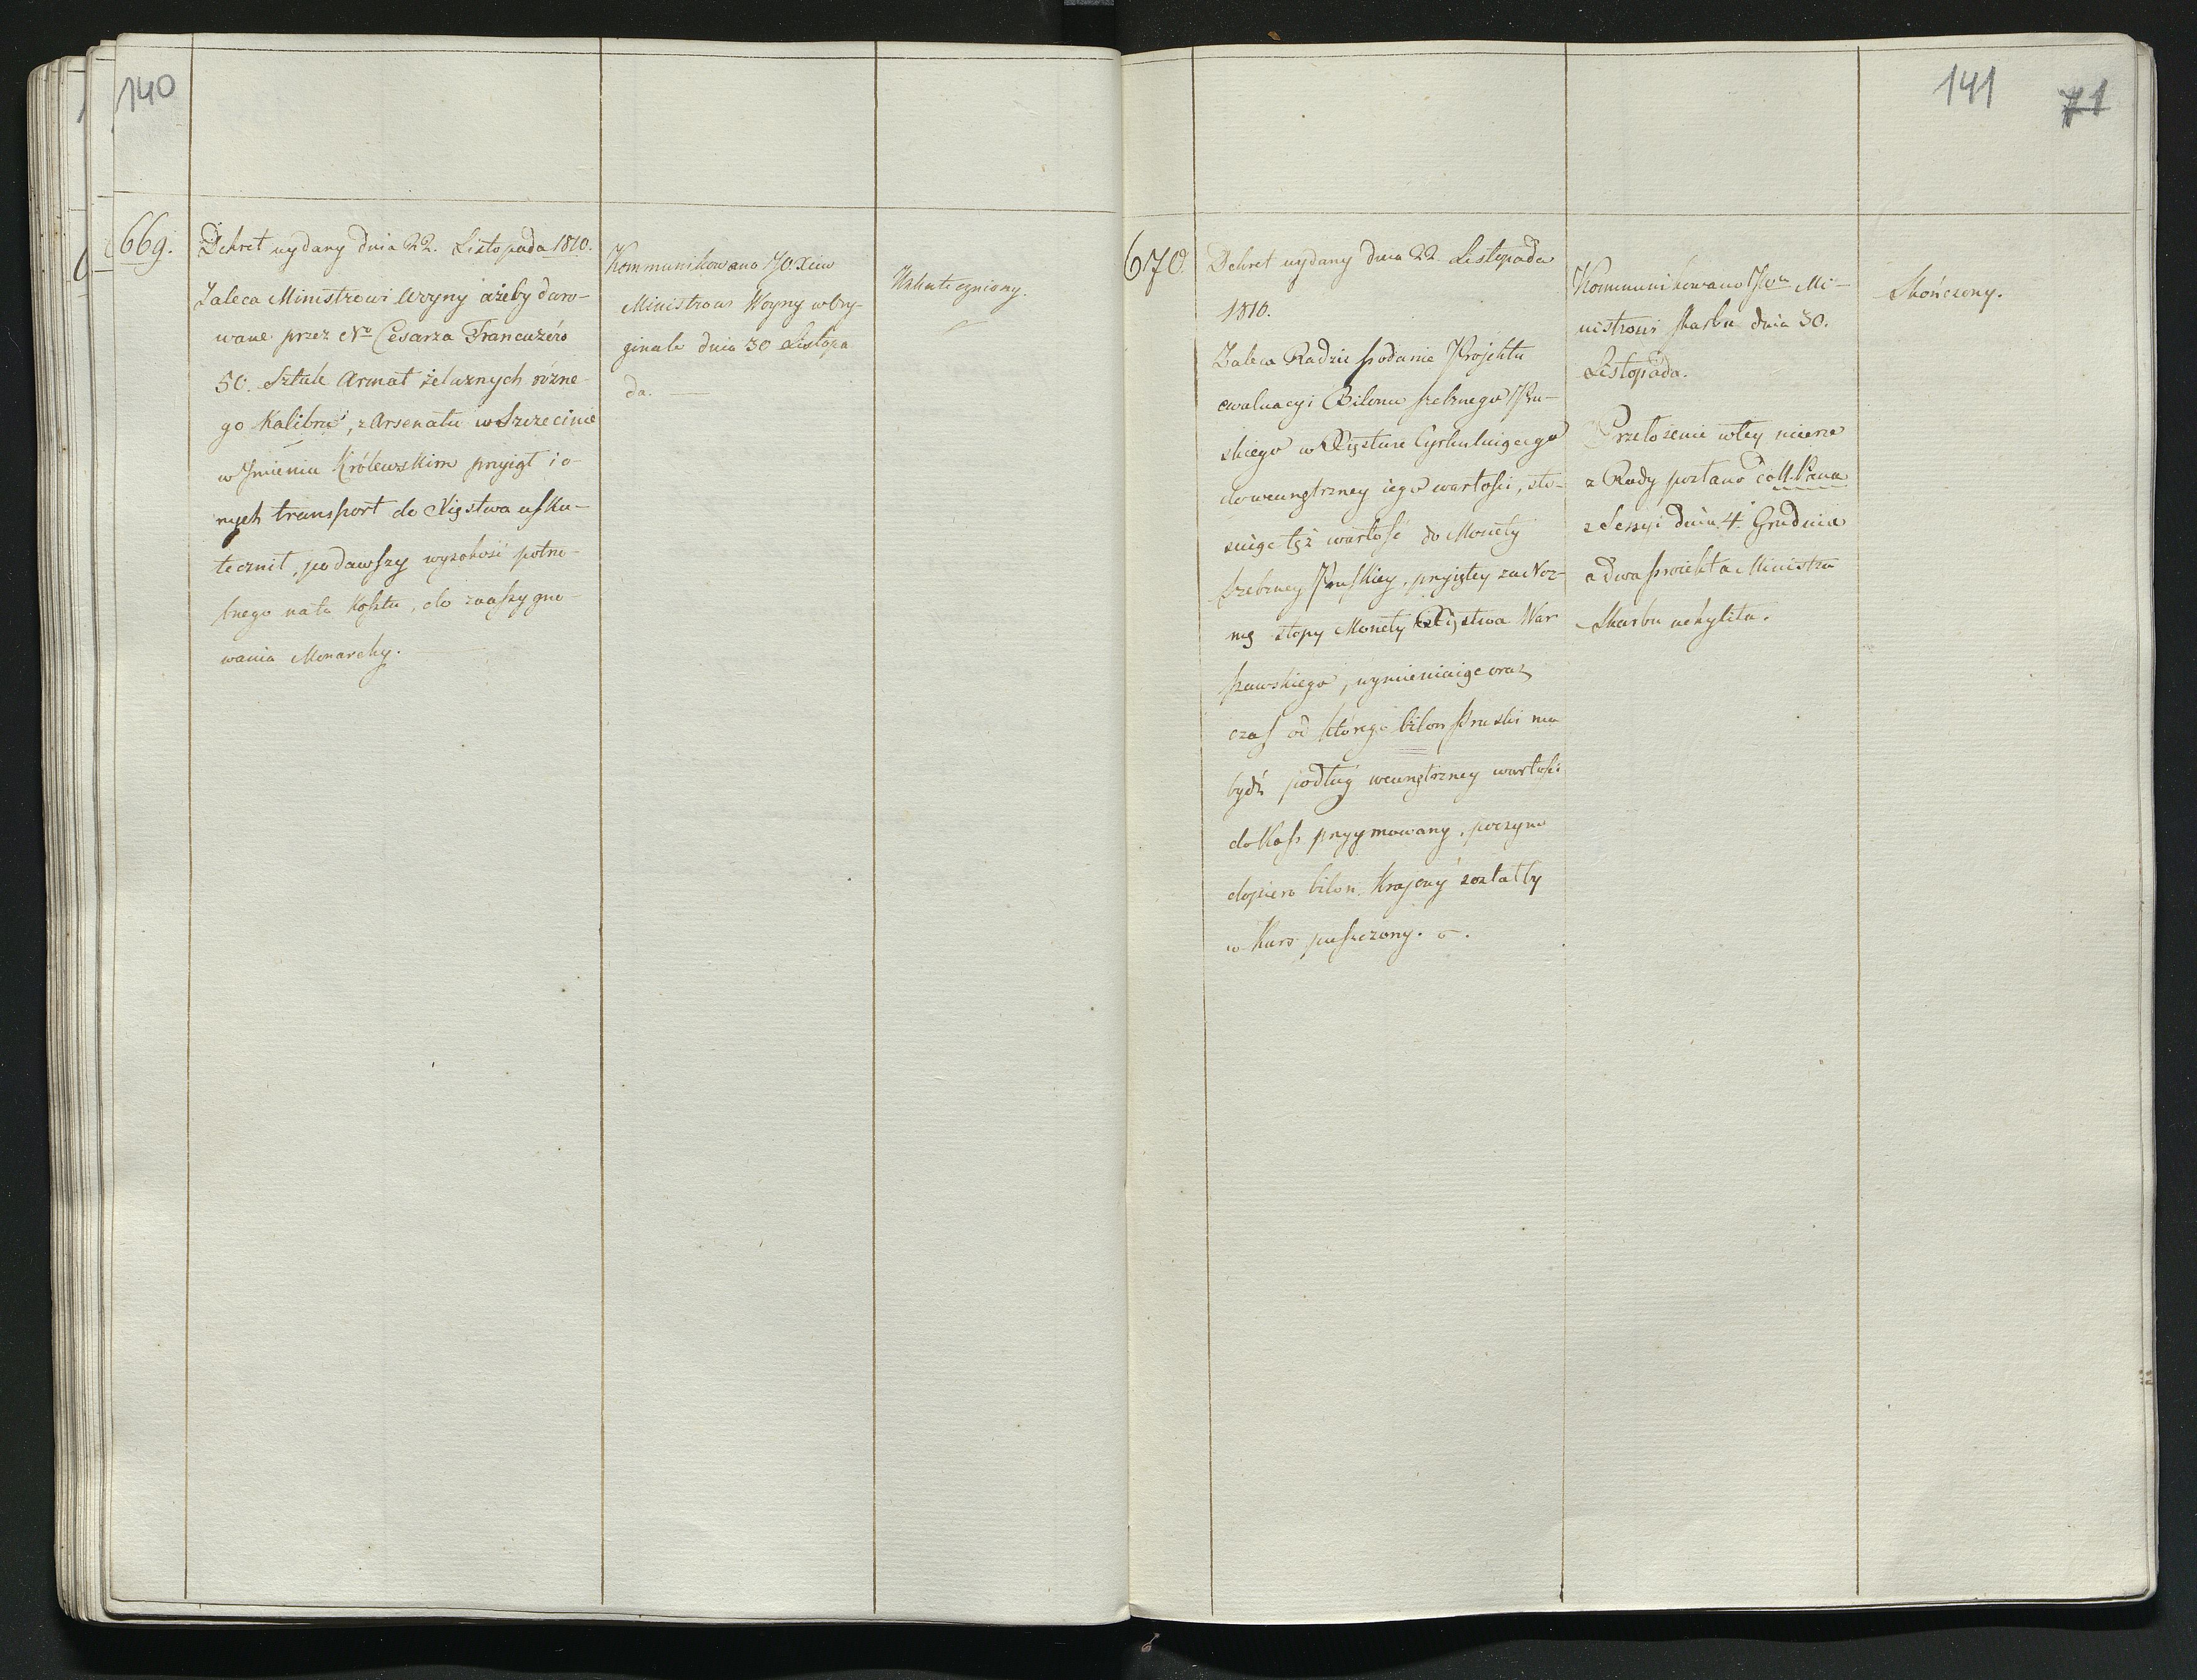 140
669.
Dekret wydany dnia 22. Listopada 1810.
Zaleca Ministrowi Woyny ażeby daro-
wane przez Nº Cesarza Francuzów
50. Sztuk Armat żelaznych różne-
go Kalibru, z Arsenału w Szczecinie
w Jmieniu Królewskim przyiął i o-
nych transport do Xięstwa usku-
tecznił, podawszy wysokość potrze-
bnego na to Kosztu, do zaassygno-
wania Monarchy.
Kommunikowano JO Xciu
Ministrowi Woyny w Ory-
ginale dnia 30 Listopa
da.
Uskuteczniony.
141 71
670.
Dekret wydany dnia 22 Listopada
1810.
Zaleca Radzie podanie Projektu
ewaluacyi Bilonu srebrnego Pru-
skiego w Xięstwie Cyrkuluiącego
do wewnętrzney iego wartości, sto-
suiąc tęż wartość do Monety
srebrney Pruskiey, przyiętey za Nor-
mę stopy Monety Xięstwa War
szawskiego, wymieniaiąc oraz
czas od którego bilon Pruski ma
bydź podług wewnętrzney wartości
do Kass przyymowany, poczym
dopiero bilon Krajowy zostałby
w Kurs puszczony.
Kommunikowano JWu Mi-
nistrowi Skarbu dnia 30.
Listopada.
Przełożenie w tey mierze
z Rady posłano do N. Pana
z Sessyi dnia 4. Grudnia
a dwa proiekta Ministra
Skarbu uchyliła.
Skończony.